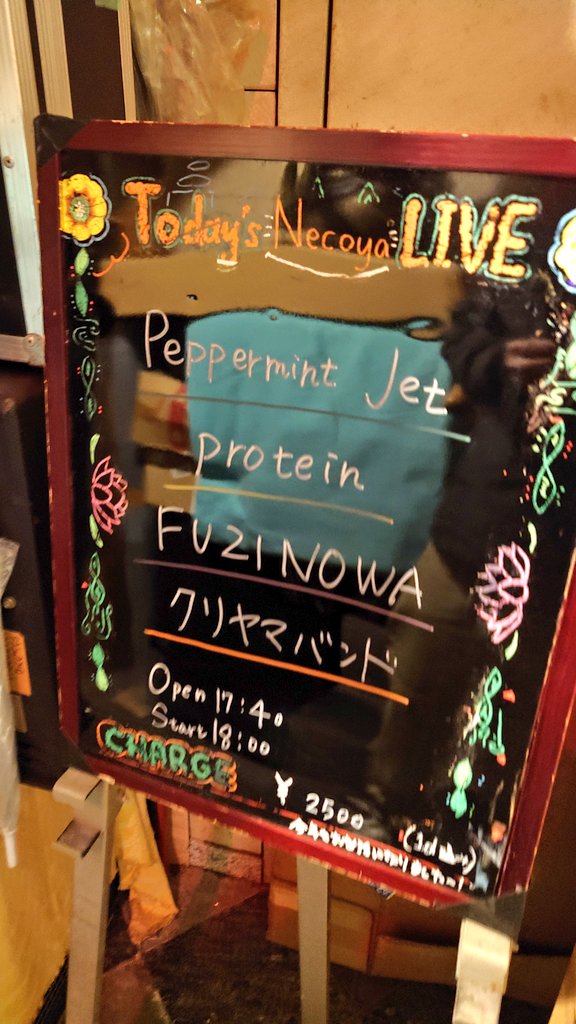 Today's Necoya LIVE
Peppermint Jet
protein
FUZINOWA
クリヤマバンド
Open 17:40
Start 18:00
CHARGE
¥ 2500